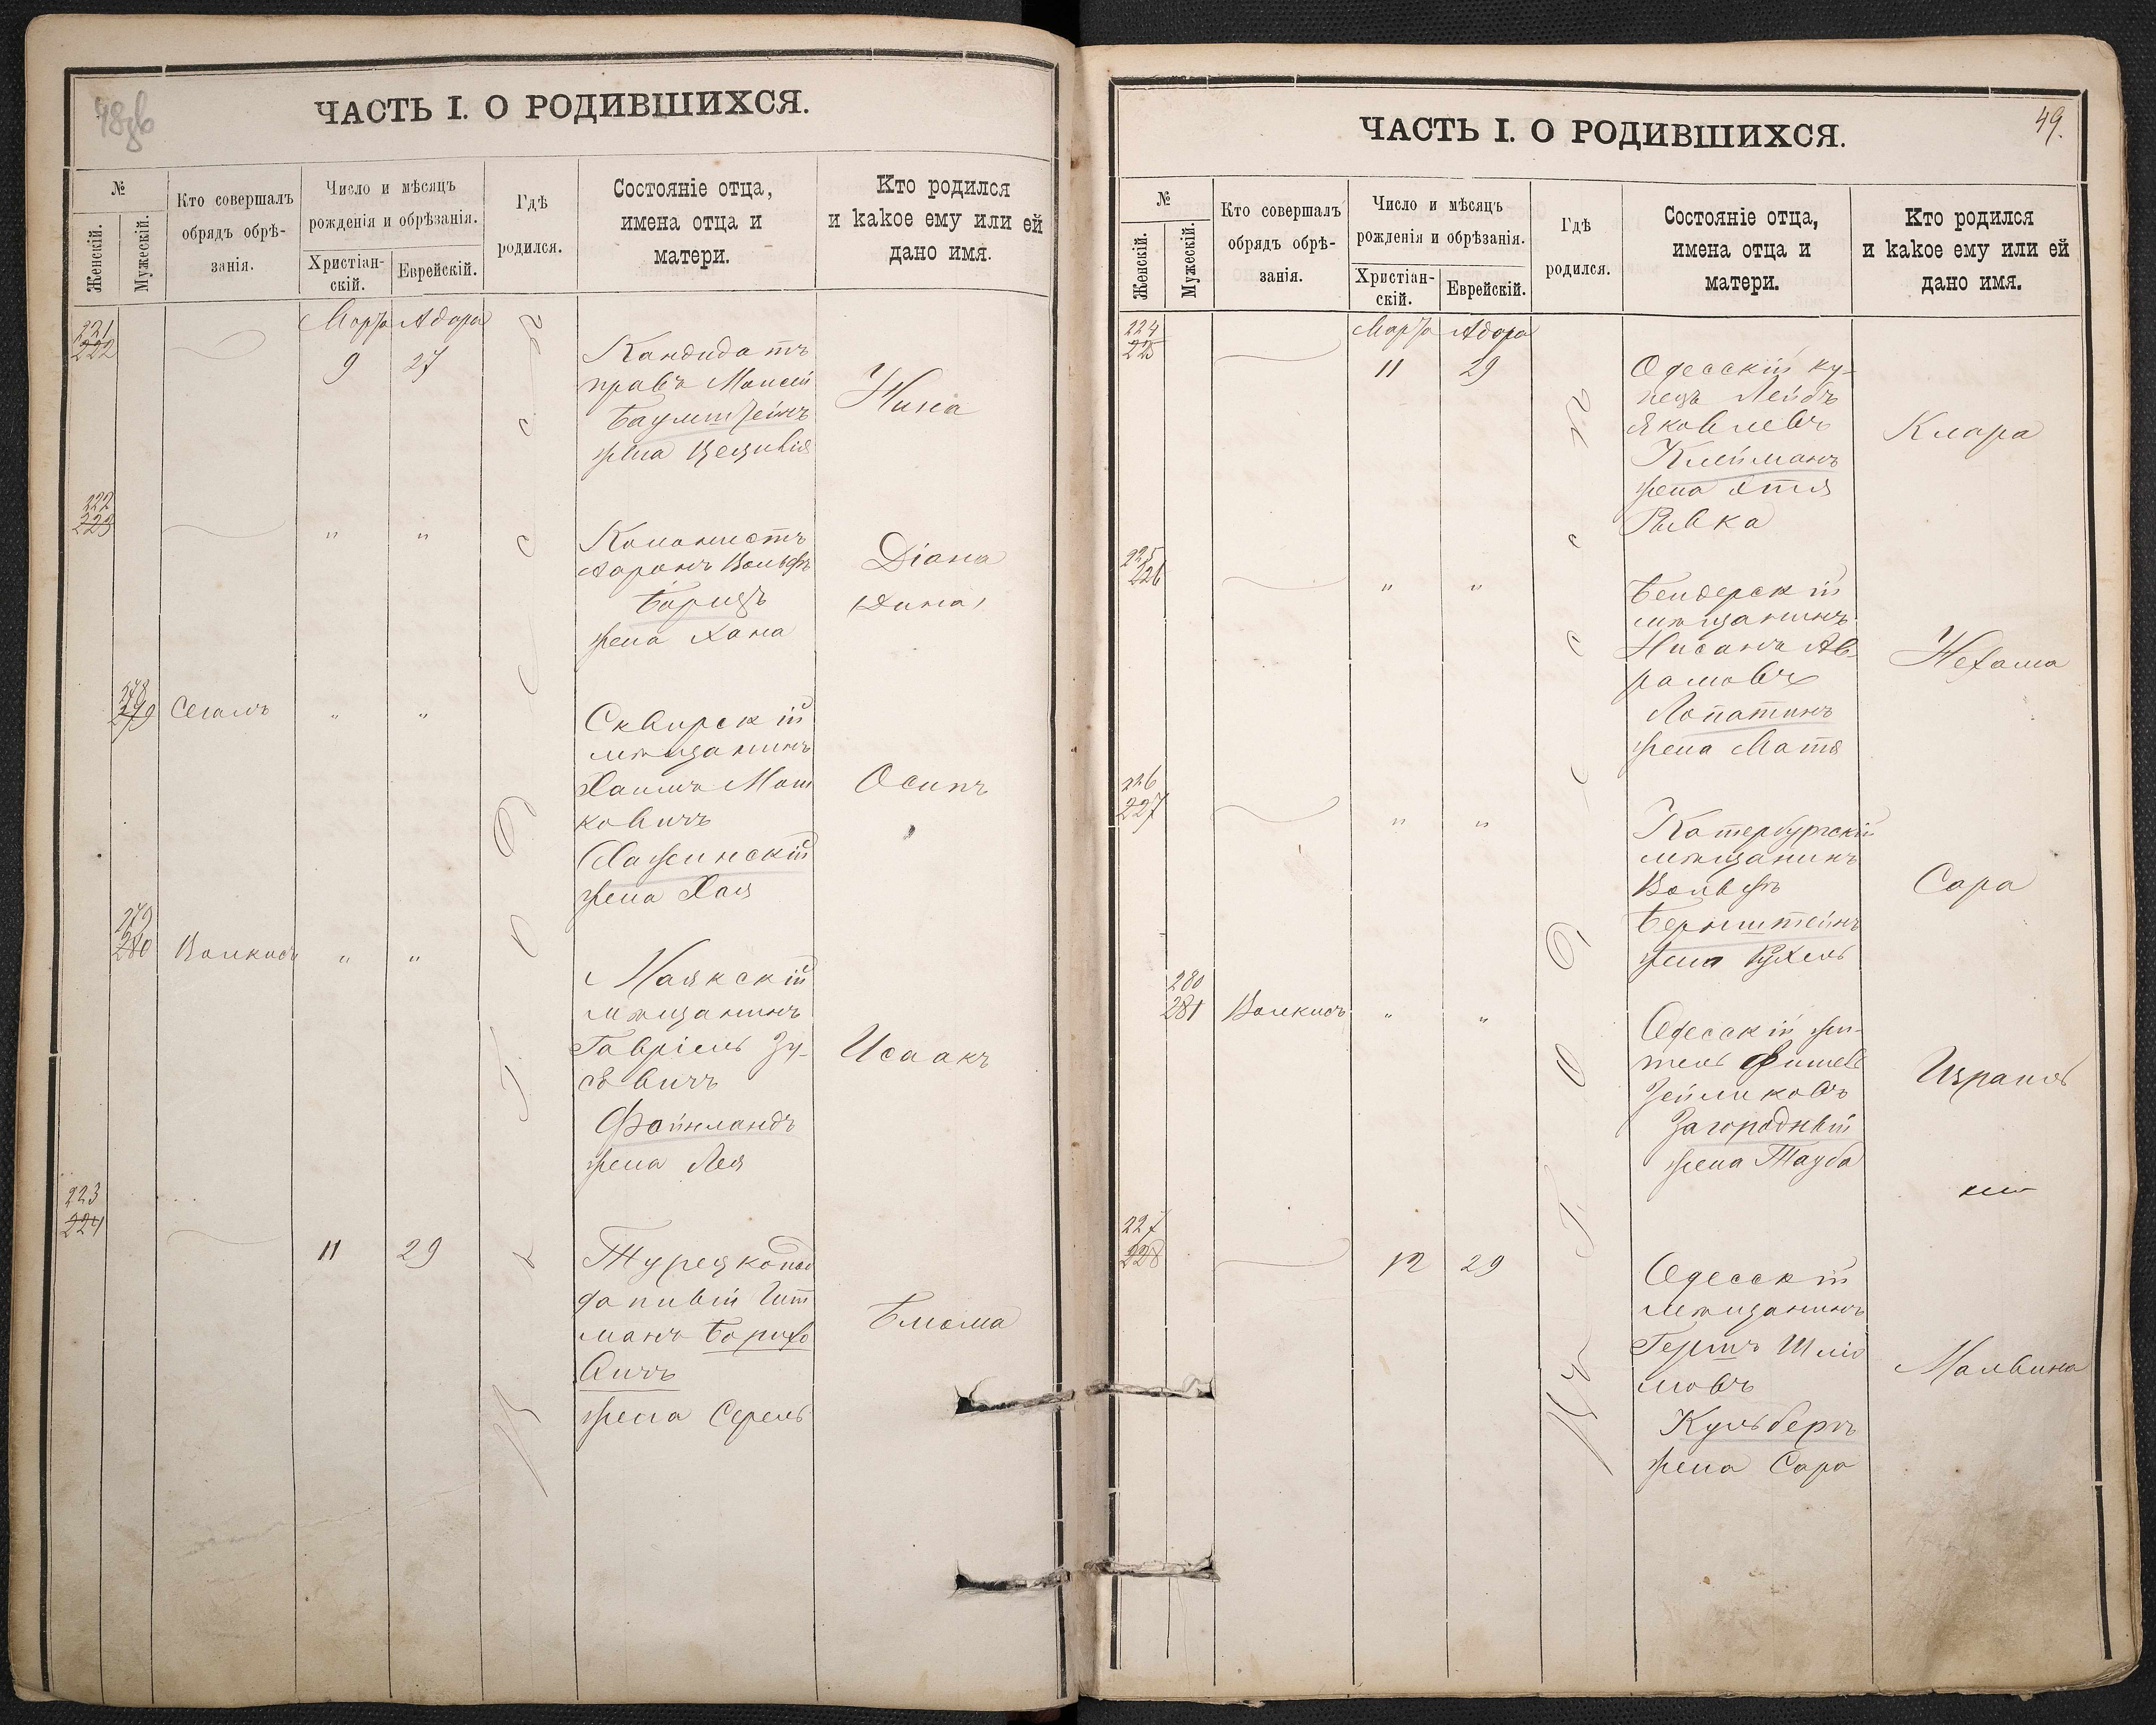 ЧАСТЬ I. О РОДИВШИХСЯ.
№
Женскій.
Мужескій.
Кто совершалъ
обрядъ обрѣ-
занія.
Число и мѣсяцъ
рожденія и обрѣзанія.
Христіан-
скій.
Еврейскій.
Гдѣ
родился.
Состояніе отца,
имена отца и
матери.
Кто родился
и какое ему или ей
дано имя.
Марта Адара
221
222
9 27
Кандидатъ
правъ Моисей
Баумштейнъ
жена Цецилія
Нина
222
223
" "
Колонистъ
Аронъ Вольфъ
Борицъ
жена Хана
Діана
(Дина)
278
279
Сегалъ
" "
Сквирскій
мѣщанинъ
Хаимъ Мош
ковичъ
Хажинскій
жена Хая
Осипъ
279
280
Волкисъ
" "
Маякскій
мѣщанинъ
Гавріель Зу-
севичъ
Файнландъ
жена Лея
Исаакъ
223
224
11 29
Турецкопод
данный Гит
манъ Борухо
вичъ
жена Серель
Блюма
въ г. Одессѣ
ЧАСТЬ I. О РОДИВШИХСЯ.
49.
№
Женскій.
Мужескій.
Кто совершалъ
обрядъ обрѣ-
занія.
Число и мѣсяцъ
рожденія и обрѣзанія.
Христіан-
скій.
Еврейскій.
Гдѣ
родился.
Состояніе отца,
имена отца и
матери.
Кто родился
и какое ему или ей
дано имя.
Марта Адара
224
225
11 29
Одесскій ку-
пецъ Лейбъ
Яковлевъ
Клейманъ
жена Этля
Ривка
Клара
225
226
" "
Бендерскій
мѣщанинъ
Нисанъ Аб-
рамовъ
Лопатинъ
жена Матя
Нехама
226
227
" "
Катербургскій
мѣщанинъ
Вольфъ
Бернштейнъ
жена Рухль
Сара
280
281
Волкисъ
" "
Одесскій жи-
тель Фишель
Зейликовъ
Загородный
жена Тауба
Израиль
227
228
12 29
Одесскій
мѣщанинъ
Гершъ Шлió
мовъ
Кульбергъ
жена Сара
Мальвина
въ г. Одессѣ